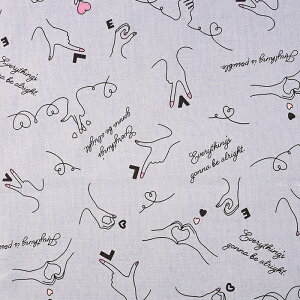 E
L
Anything is possible
Everything's
gonna be alright.
V
Everything's
gonna be alright
L
Everything's
gonna be alright.
E
V
Anything is possible
L
Everything's
gonna be alright.